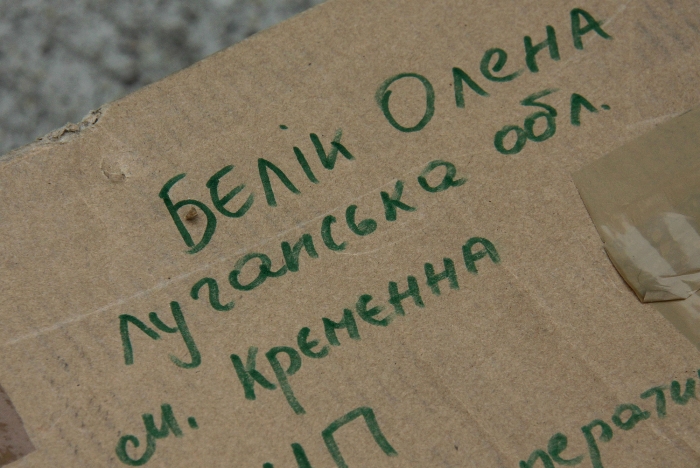 Белік Олена
Луганська обл.
см. Кременна